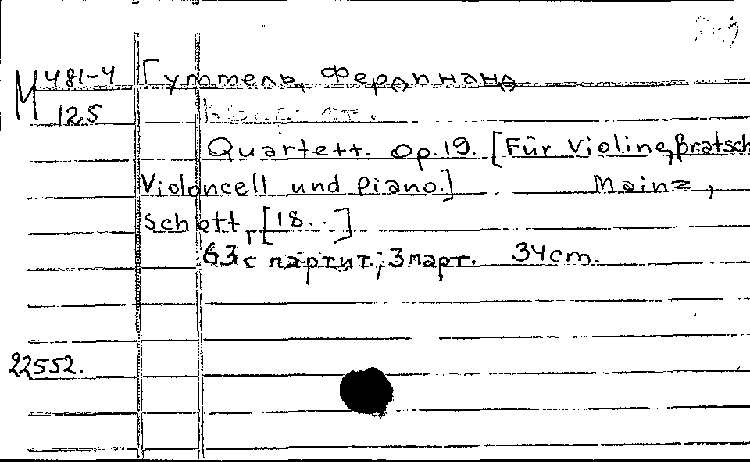 М 481-4 Гуммель, Фердинанд
125
Quartett. Op.19. [Für Violine, Bratsch
Violoncell und Piano.] Mainz,
Schott, [18..]
63 с партит.; 3 парт. 34 cm.
22552.